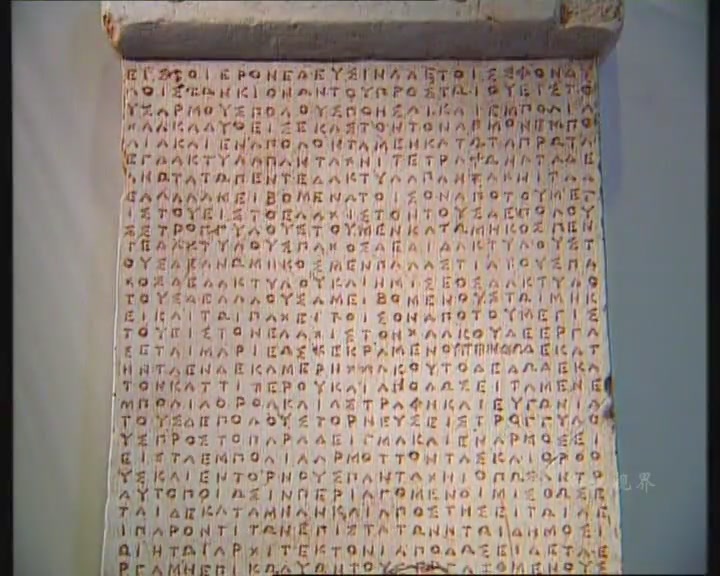 ΕΙΣΤΟΙΕΡΟΝΕΛΕΥΣΙΝΑΔΕΤΟΙΣΣΦΟΝΔΥ
ΛΟΙΣΤΩΝΚΙΟΝΩΝΤΟΥΠΡΟΣΤΩΙΟΥΕΙΣΤΟ
ΥΣΑΡΜΟΥΣΠΟΛΟΥΣΠΟΗΣΑΙΚΑΙΕΜΠΟΛΙΑ
ΧΑΛΚΑΔΥΟΕΙΣΕΚΑΣΤΟΝΤΟΝΑΡΜΟΝΕΜΠΟ
ΛΙΑΚΑΙΕΝΑΠΟΛΟΝΤΑΜΕΝΚΑΤΩΤΑΠΡΩΤΑ
ΕΓΔΑΚΤΥΛΑΠΑΝΤΑΧΗΙΤΕΤΡΑΓΩΝΑΤΑΔΕ
ΑΝΩΤΑΤΩΠΕΝΤΕΔΑΚΤΥΛΑΠΑΝΤΑΧΗΙΤΑΔ
ΕΑΛΛΑΑΜΕΙΒΟΜΕΝΑΤΟΙΣΟΝΑΠΟΤΟΥΜΕΓ
ΙΣΤΟΥΕΙΣΤΟΕΛΑΧΙΣΤΟΝΤΟΥΣΔΕΠΟΛΟΥ
ΣΣΤΡΟΓΓΥΛΟΥΣΤΟΥΜΕΝΚΑΤΩΜΗΚΟΣΠΕΝ
ΤΕΔΑΚΤΥΛΟΥΣΠΑΧΟΣΔΕΔΙΔΑΚΤΥΛΟΥΣΤ
ΟΥΣΔΕΑΝΩΜΗΚΟΣΜΕΝΠΑΛΑΣΤΙΑΙΟΥΣΠΑ
ΧΟΣΔΕΔΑΚΤΥΛΟΥΚΑΙΗΜΙΣΕΟΣΔΑΚΤΥΛΟ
ΤΟΥΣΔΕΑΛΛΟΥΣΑΜΕΙΒΟΜΕΝΟΥΣΤΩΙΜΗΚ
ΕΙΚΑΙΤΩΙΠΑΧΕΙΤΟΙΣΟΝΑΠΟΤΟΥΜΕΓΙΣ
ΤΟΥΕΙΣΤΟΝΕΛΑΧΙΣΤΟΝΧΑΛΚΟΥΔΕΕΡΓΑ
ΣΕΤΑΙΜΑΡΙΕΩΣΚΕΚΡΑΜΕΝΟΥΤΗΝΔΩΔΕΚΑΤ
ΗΝΤΑΕΝΔΕΚΑΜΕΡΗΧΑΛΚΟΥΤΟΔΕΔΩΔΕΚΑ
ΤΟΝΚΑΤΤΙΤΕΡΟΥΚΑΙΑΠΟΔΩΣΕΙΤΑΜΕΝΕ
ΜΠΟΛΙΑΟΡΘΑΚΑΙΑΣΤΡΑΦΗΚΑΙΕΥΓΩΝΙΑ
ΤΟΥΣΔΕΠΟΛΟΥΣΤΟΡΝΕΥΣΕΙΣΤΡΟΓΓΥΛΟ
ΥΣΠΡΟΣΤΟΠΑΡΑΔΕΙΓΜΑΚΑΙΕΝΑΡΜΟΣΕΙ
ΕΙΣΤΑΕΜΠΟΛΙΑΑΡΜΟΤΤΟΝΤΑΣΚΑΙΟΡΘΟ
ΥΣΚΑΙΕΝΤΟΡΝΟΥΣΠΑΝΤΑΧΗΙΟΠΩΣΑΝΤΟ
ΑΥΤΟΠΟΙΩΣΙΝΠΕΡΙΑΓΟΜΕΝΟΙΜΙΣΘΩΣΕ
ΤΑΙΔΕΚΑΤΑΜΝΑΝΚΑΙΑΠΟΣΤΗΣΕΙΤΑΙ
ΙΠΑΡΟΝΤΙΤΩΝΕΠΙΣΤΑΤΩΝΤΩΙΔΗΜΟΣΙ
ΩΙΗΤΩΙΑΡΧΙΤΕΚΤΟΝΙΑΠΟΔΩΣΕΙΔΕΤΑΕ
ΡΓΑΜΗΕΠΙΚΩΛΥΩΝΤΟΥΣ
视界